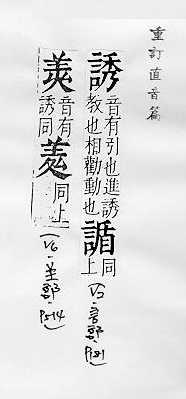 重訂直音篇
誘 音有引也進誘
教也相勸動也 䛻 同
上
(V5-言部-P181)
羑 音有
誘同 同上
(V6-羊部-P514)